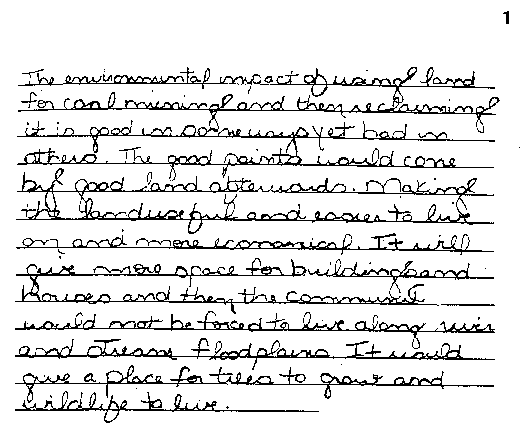 1
The environmental impact of using land
for coal mining and then reclaiming
it is good in some ways yet bad in
others. The good points would come
by good land afterwards. Making
the land useful and easier to live
on and more economical. It will
give more space for buildings and
houses and then the communit
would not be forced to live along river
and stream floodplains. It would
give a place for trees to grow and
wildlife to live.